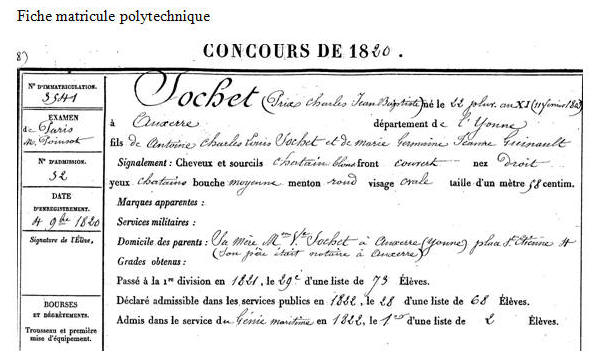 Fiche matricule polytechnique
CONCOURS DE 1820.
8)
N° D'IMMATRICULATION.
3541
EXAMEN
de Paris
M. Poinsot
N° D'ADMISSION.
52
DATE
D'ENREGISTREMENT.
4 9bre 1820
Signature de l'Élève.
BOURSES
ET DÉGRÈVEMENTS.
Trousseau et première
mise d'équipement.
Sochet (Prix Charles Jean Baptiste) né le 22 pluv. an XI (11 février 1803)
à Auxerre département de l'Yonne
fils de Antoine Charles Louis Sochet et de marie Germaine Jeanne Guinault
Signalement : Cheveux et sourcils chatain blond front couvert nez Droit
yeux chatains bouche moyenne menton rond visage ovale taille d'un mètre 58 centim.
Marques apparentes :
Services militaires :
Domicile des parents : Sa mère Mme Ve Sochet à Auxerre (Yonne) place St Etienne 4
(Son père était notaire à Auxerre)
Grades obtenus :
Passé à la 1re division en 1821, le 29e d'une liste de 73 Élèves.
Déclaré admissible dans les services publics en 1822, le 28 d'une liste de 68 Élèves.
Admis dans le service du Génie maritime en 1822, le 1er d'une liste de 2 Élèves.